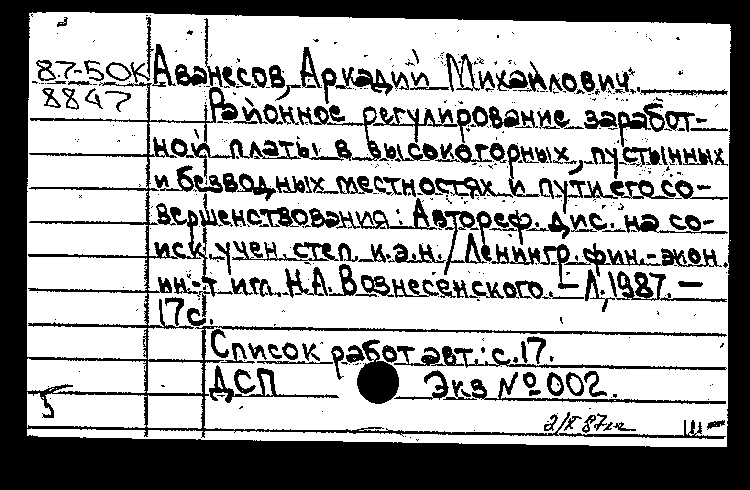 87-5OK Аванесов, Аркадий Михайлович.
8847 Районное регулирование заработ-
ной платы в высокогорных, пустынных
и безводных местностях и пути его со-
вершенствования: Автореф. дис. на со-
иск. учен. степ. к.э.н. / Ленингр. фин.-экон.
ин.-т им. Н.А. Вознесенского. — Л., 1987. —
17с.
Список работ авт.: с.17.
ДСП Экз №002.